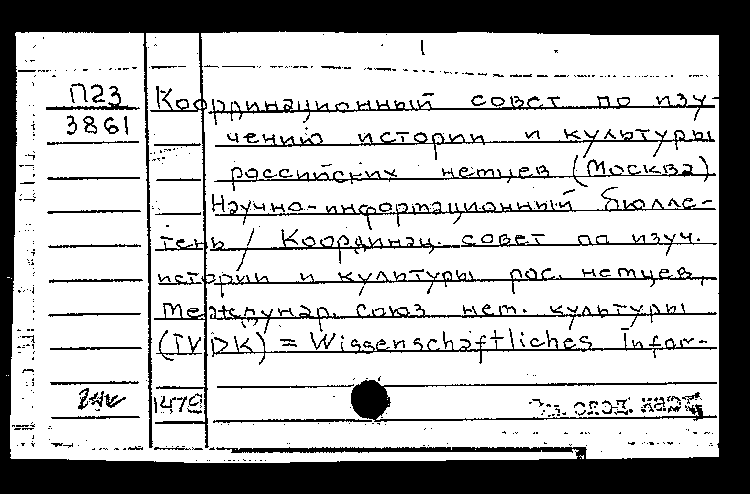 1
П23
3861
Координационный совет по изу-
чению истории и культуры
российских немцев (Москва)
Научно-информационный бюлле-
тень / Координац. совет по изуч.
истории и культуры рос. немцев,
Междунар. союз нем. культуры
(IVDK) = Wissenschaftliches Infor-
1478
см. след. карт.